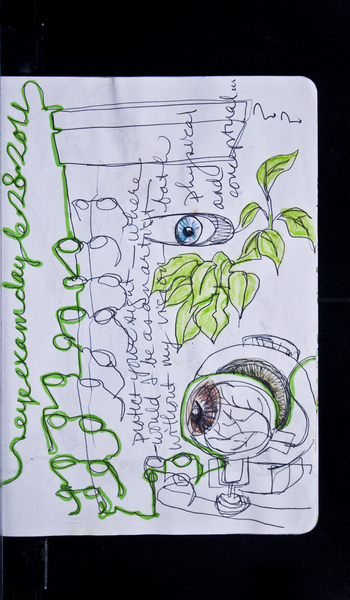 eyexamday 6·28·2011
protect your sight — where
would I be as an artist
without my vision both
physical
and
conceptual...
? ?